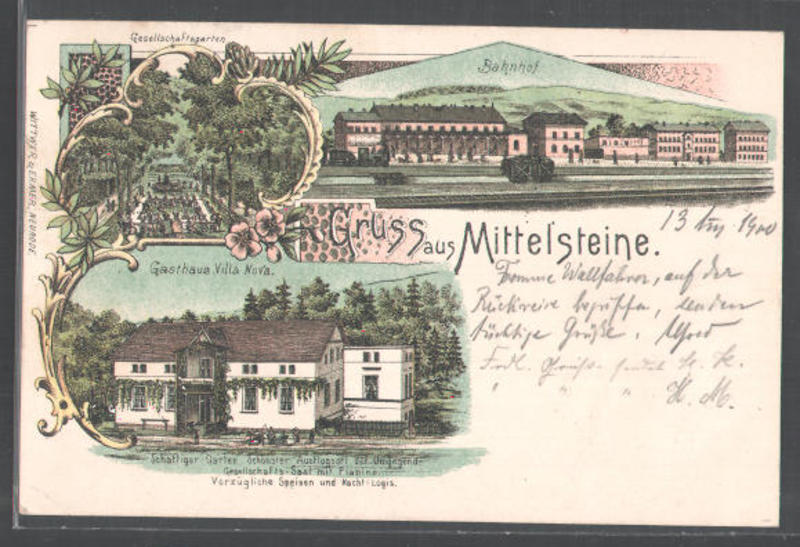 Gesellschaftsgarten
Bahnhof
WITTWER & ERMER, NEURODE
Gruss aus Mittelsteine.
13 1900
Fromme Wallfahrer, auf der
Rückreise begriffen, senden
tüchtige Grüße. Alfred
Frdl. H. K.
" " "
H. M.
Gasthaus Villa Nova.
Schattiger Garten Schönster Ausflugsort der Umgegend-
Gesellschafts-Saal mit Pianino
Vorzügliche Speisen und Nacht-Logis.